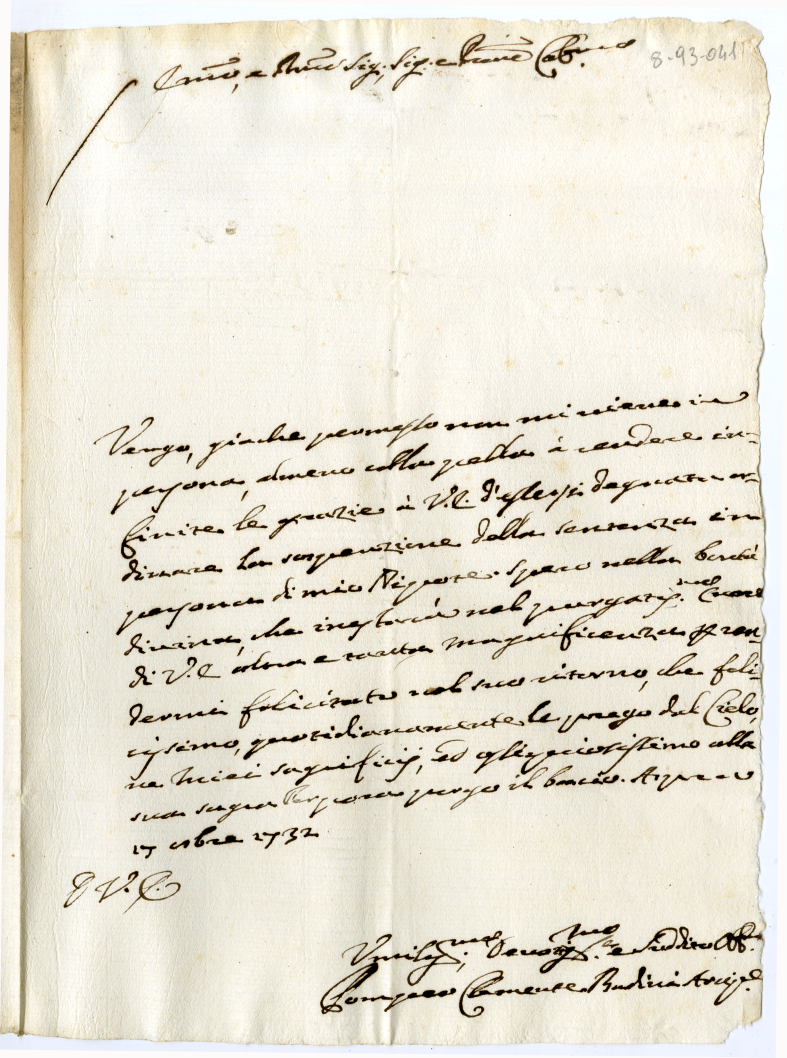 Em̃o, e Rm̃o Sig.r, Sig.r e Prone Col.mo
8-93-041
Vengo, giache permesso non mi viene in
persona, almeno colla penna à rendere in-
finite le grazie à V.E. d'essersi degnata or-
dinare la sospenzione della sentenza in
persona di mio Nipote. Spero nella bontà
divina, che inestarà nel purgatiss.mo Cuore
di V.E. altra e tanta magnificenza p ren-
dermi felicitato nel suo ritorno, che feli-
cissimo, quotidianamente le prego dal Cielo,
ne miei sagrificij, ed ossequiosissimo alla
sua sagra Porpora porgo il bacio.
17 mbre 1732
D V. E.
Umiliss.mo, Devotiss.mo e Suddito Obb.mo
Pompeo Clemente Arcip.e